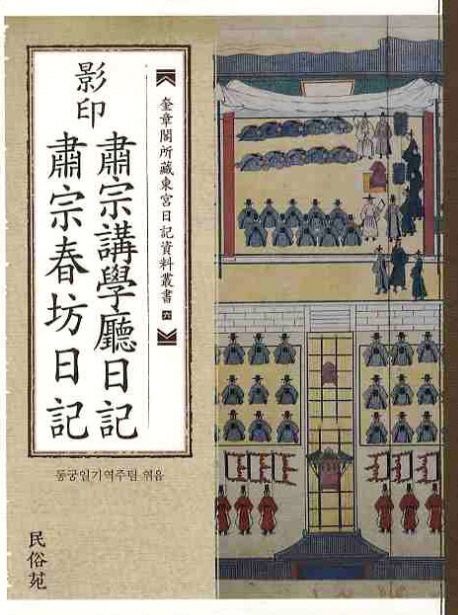 奎章閣所藏東宮日記資料叢書 六
影印
肅宗講學廳日記
肅宗春坊日記
동궁일기역주팀 엮음
民俗苑